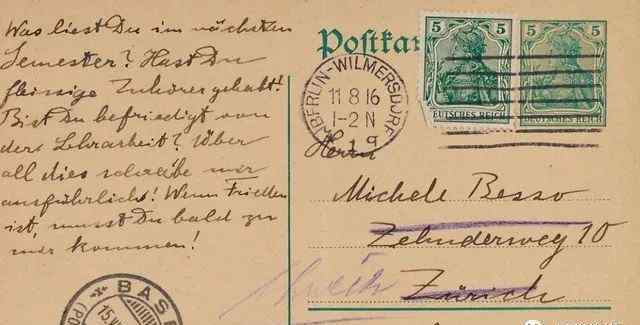 Was liest Du im nächsten
Semester? Hast Du
fleissige Zuhörer gehabt?
Bist Du befriedigt von
der Lehrarbeit? Über
all dies schreibe mir
ausführlich! Wenn Frieden
ist, musst Du bald zu
mir kommen!
Postkar
5
5 5
DEUTSCHES REICH
DEUTSCHES REICH
BERLIN-WILMERSDORF
11 8 16
1-2 N
1 9
Herrn
Michele Besso
Zehnderweg 10
Zürich
BAS
15.VI